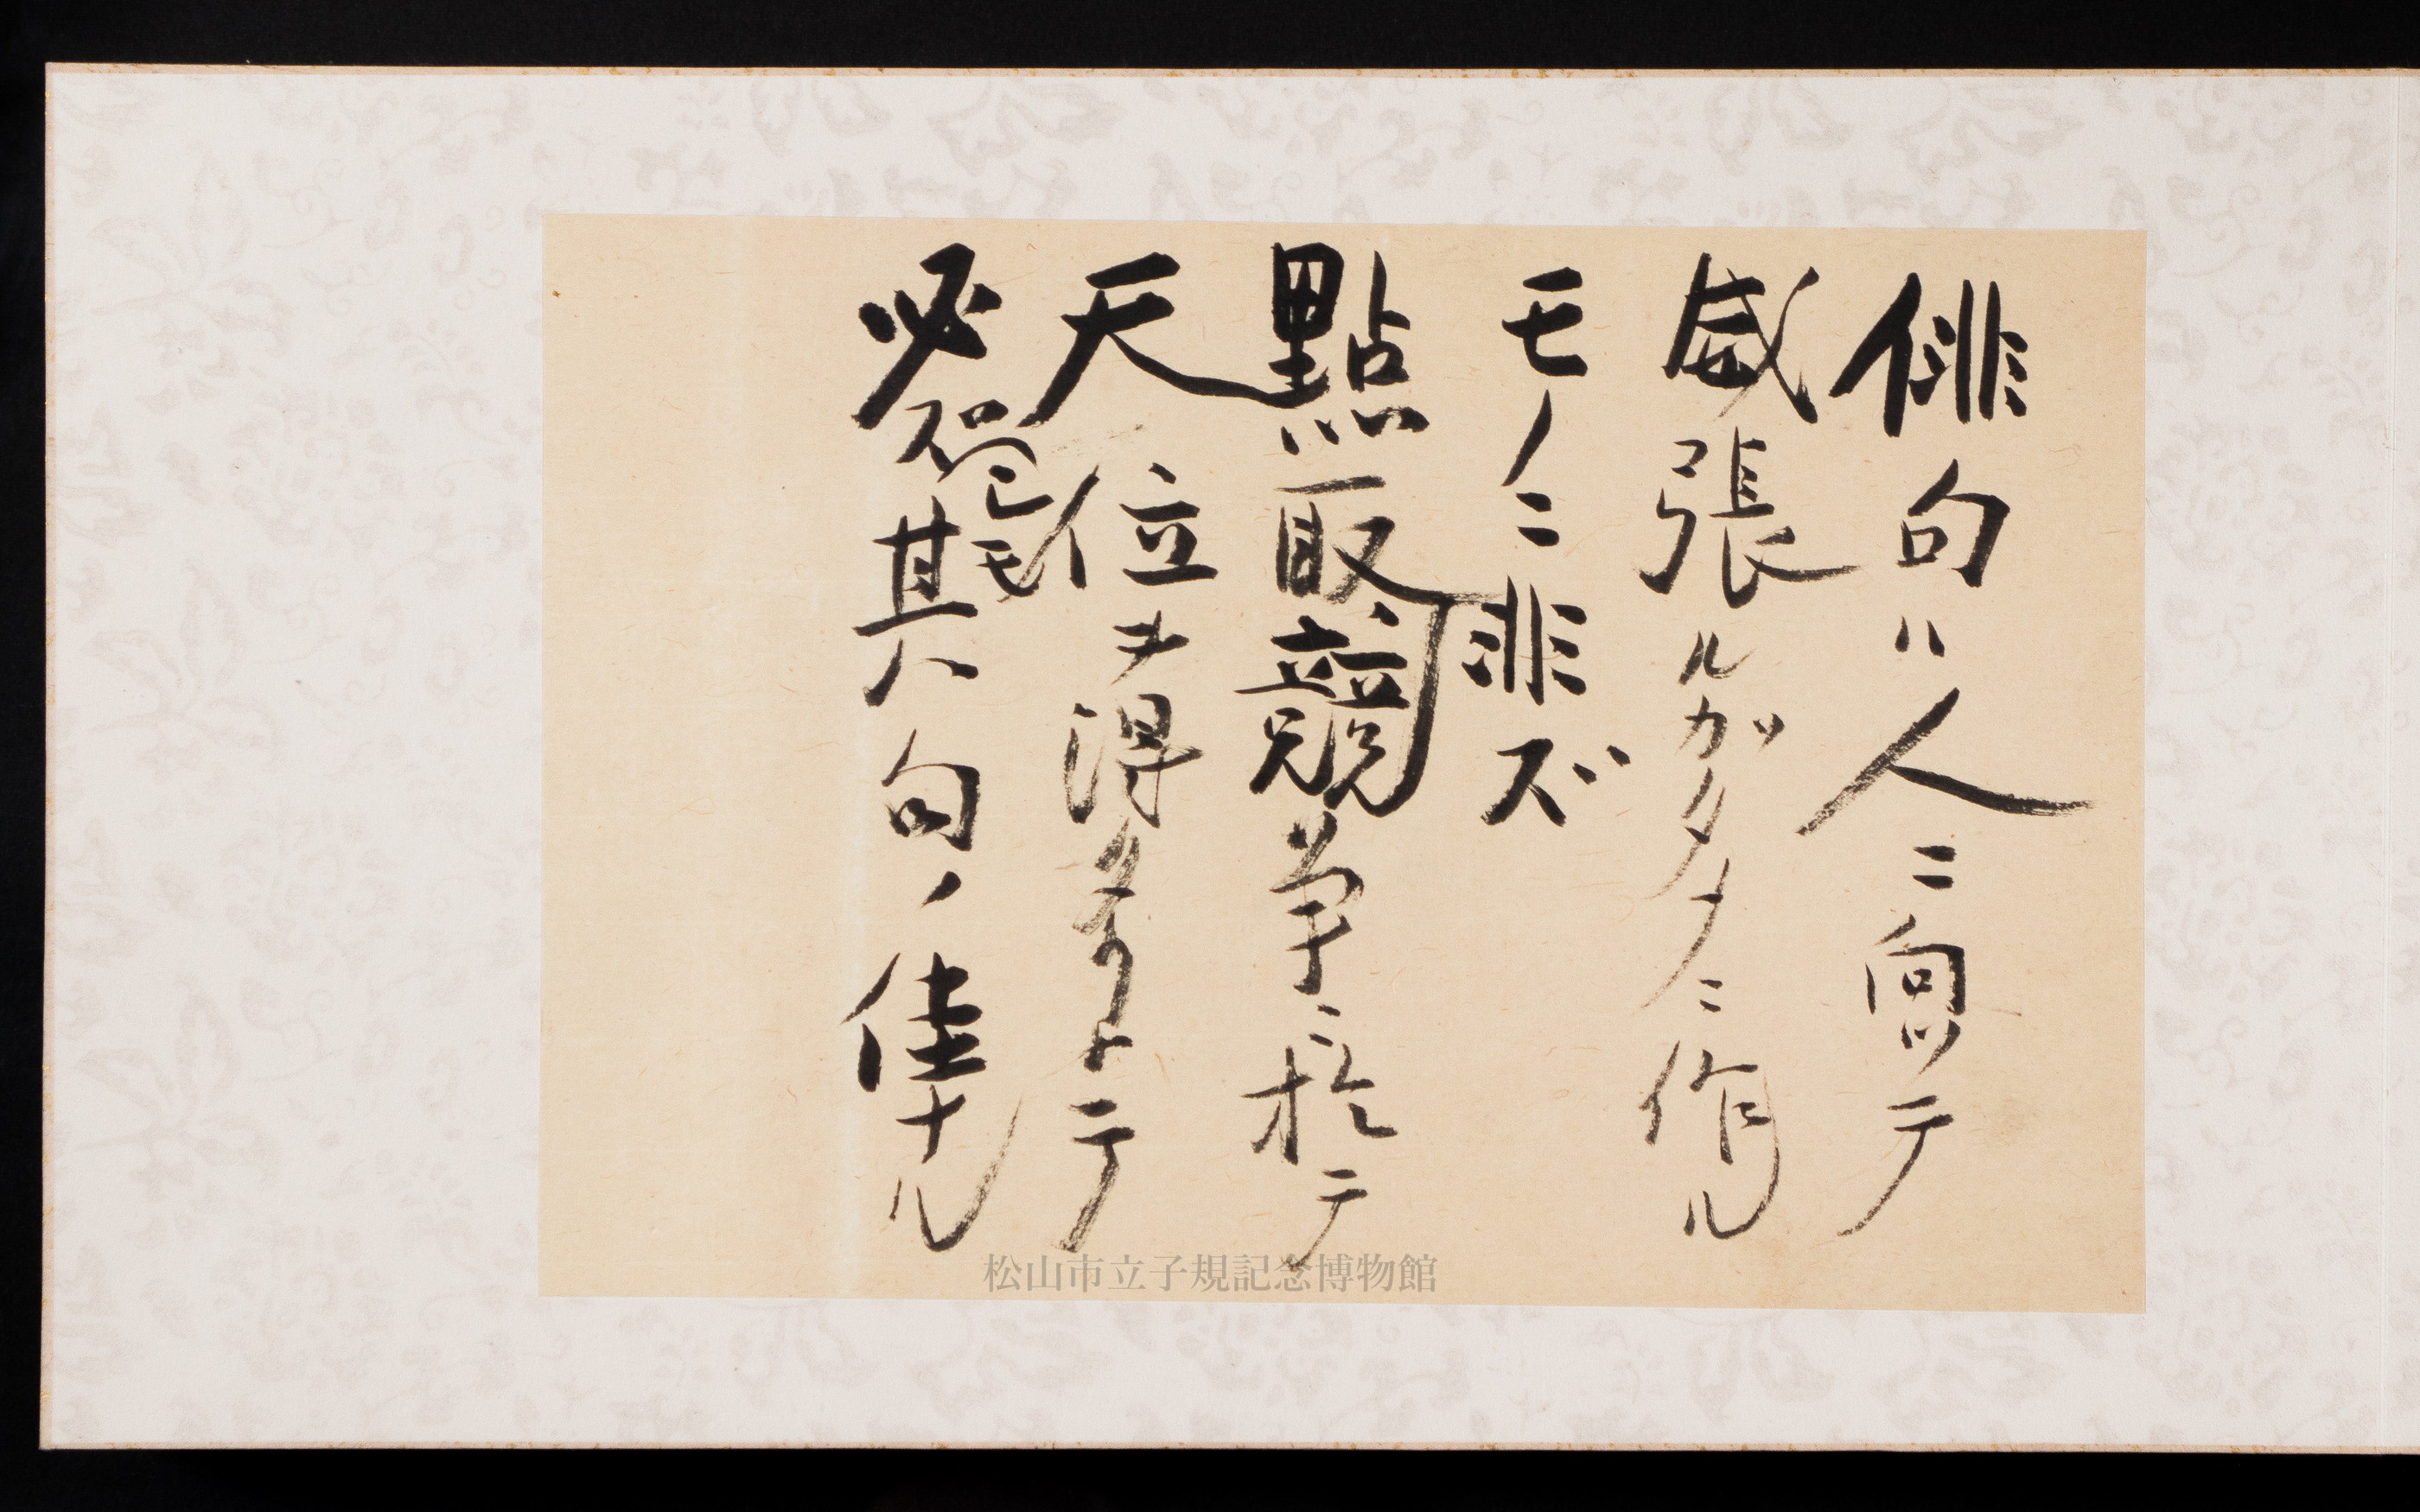 俳句ハ人ニ向ツテ
威張ルガタメニ作ル
モノニ非ズ
點取競争ニ於テ
天位ヲ得タリトテ
必ズシモ其句ノ佳ナル
松山市立子規記念博物館